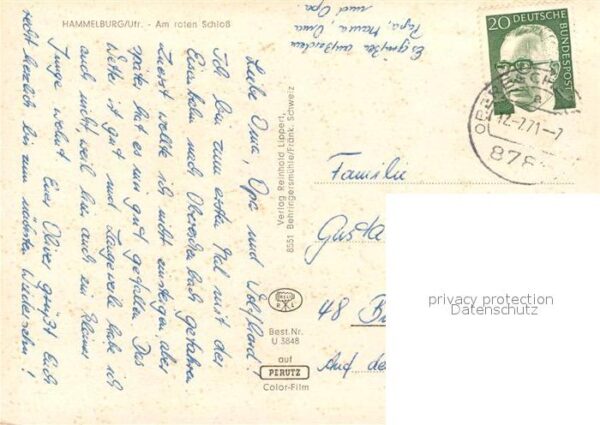 HAMMELBURG/Ufr. - Am roten Schloß
Liebe Oma, Opa und Wolfhard!
Ich bin zum ersten Mal mit der
Eisenbahn nach Obereschenbach gefahren.
Zuerst wollte ich nicht einsteigen, aber
später hat es mir gut gefallen. Das
Wetter ist gut und Langeweile habe ich
auch nicht, weil hier auch ein kleiner
Junge wohnt. Euer Oliver grüßt Euch
recht herzlich bis zum nächsten Wiedersehn!
Es grüßen außerdem
Papa, Mama, Oma
und Opa.
Verlag Reinhold Lippert,
8551 Behringersmühle/Fränk. Schweiz
Best.Nr.
U 3848
auf
PERUTZ
Color-Film
20 DEUTSCHE
BUNDESPOST
12.-7.71-7
878
Familie
Gusta
48 B
Auf de
privacy protection
Datenschutz